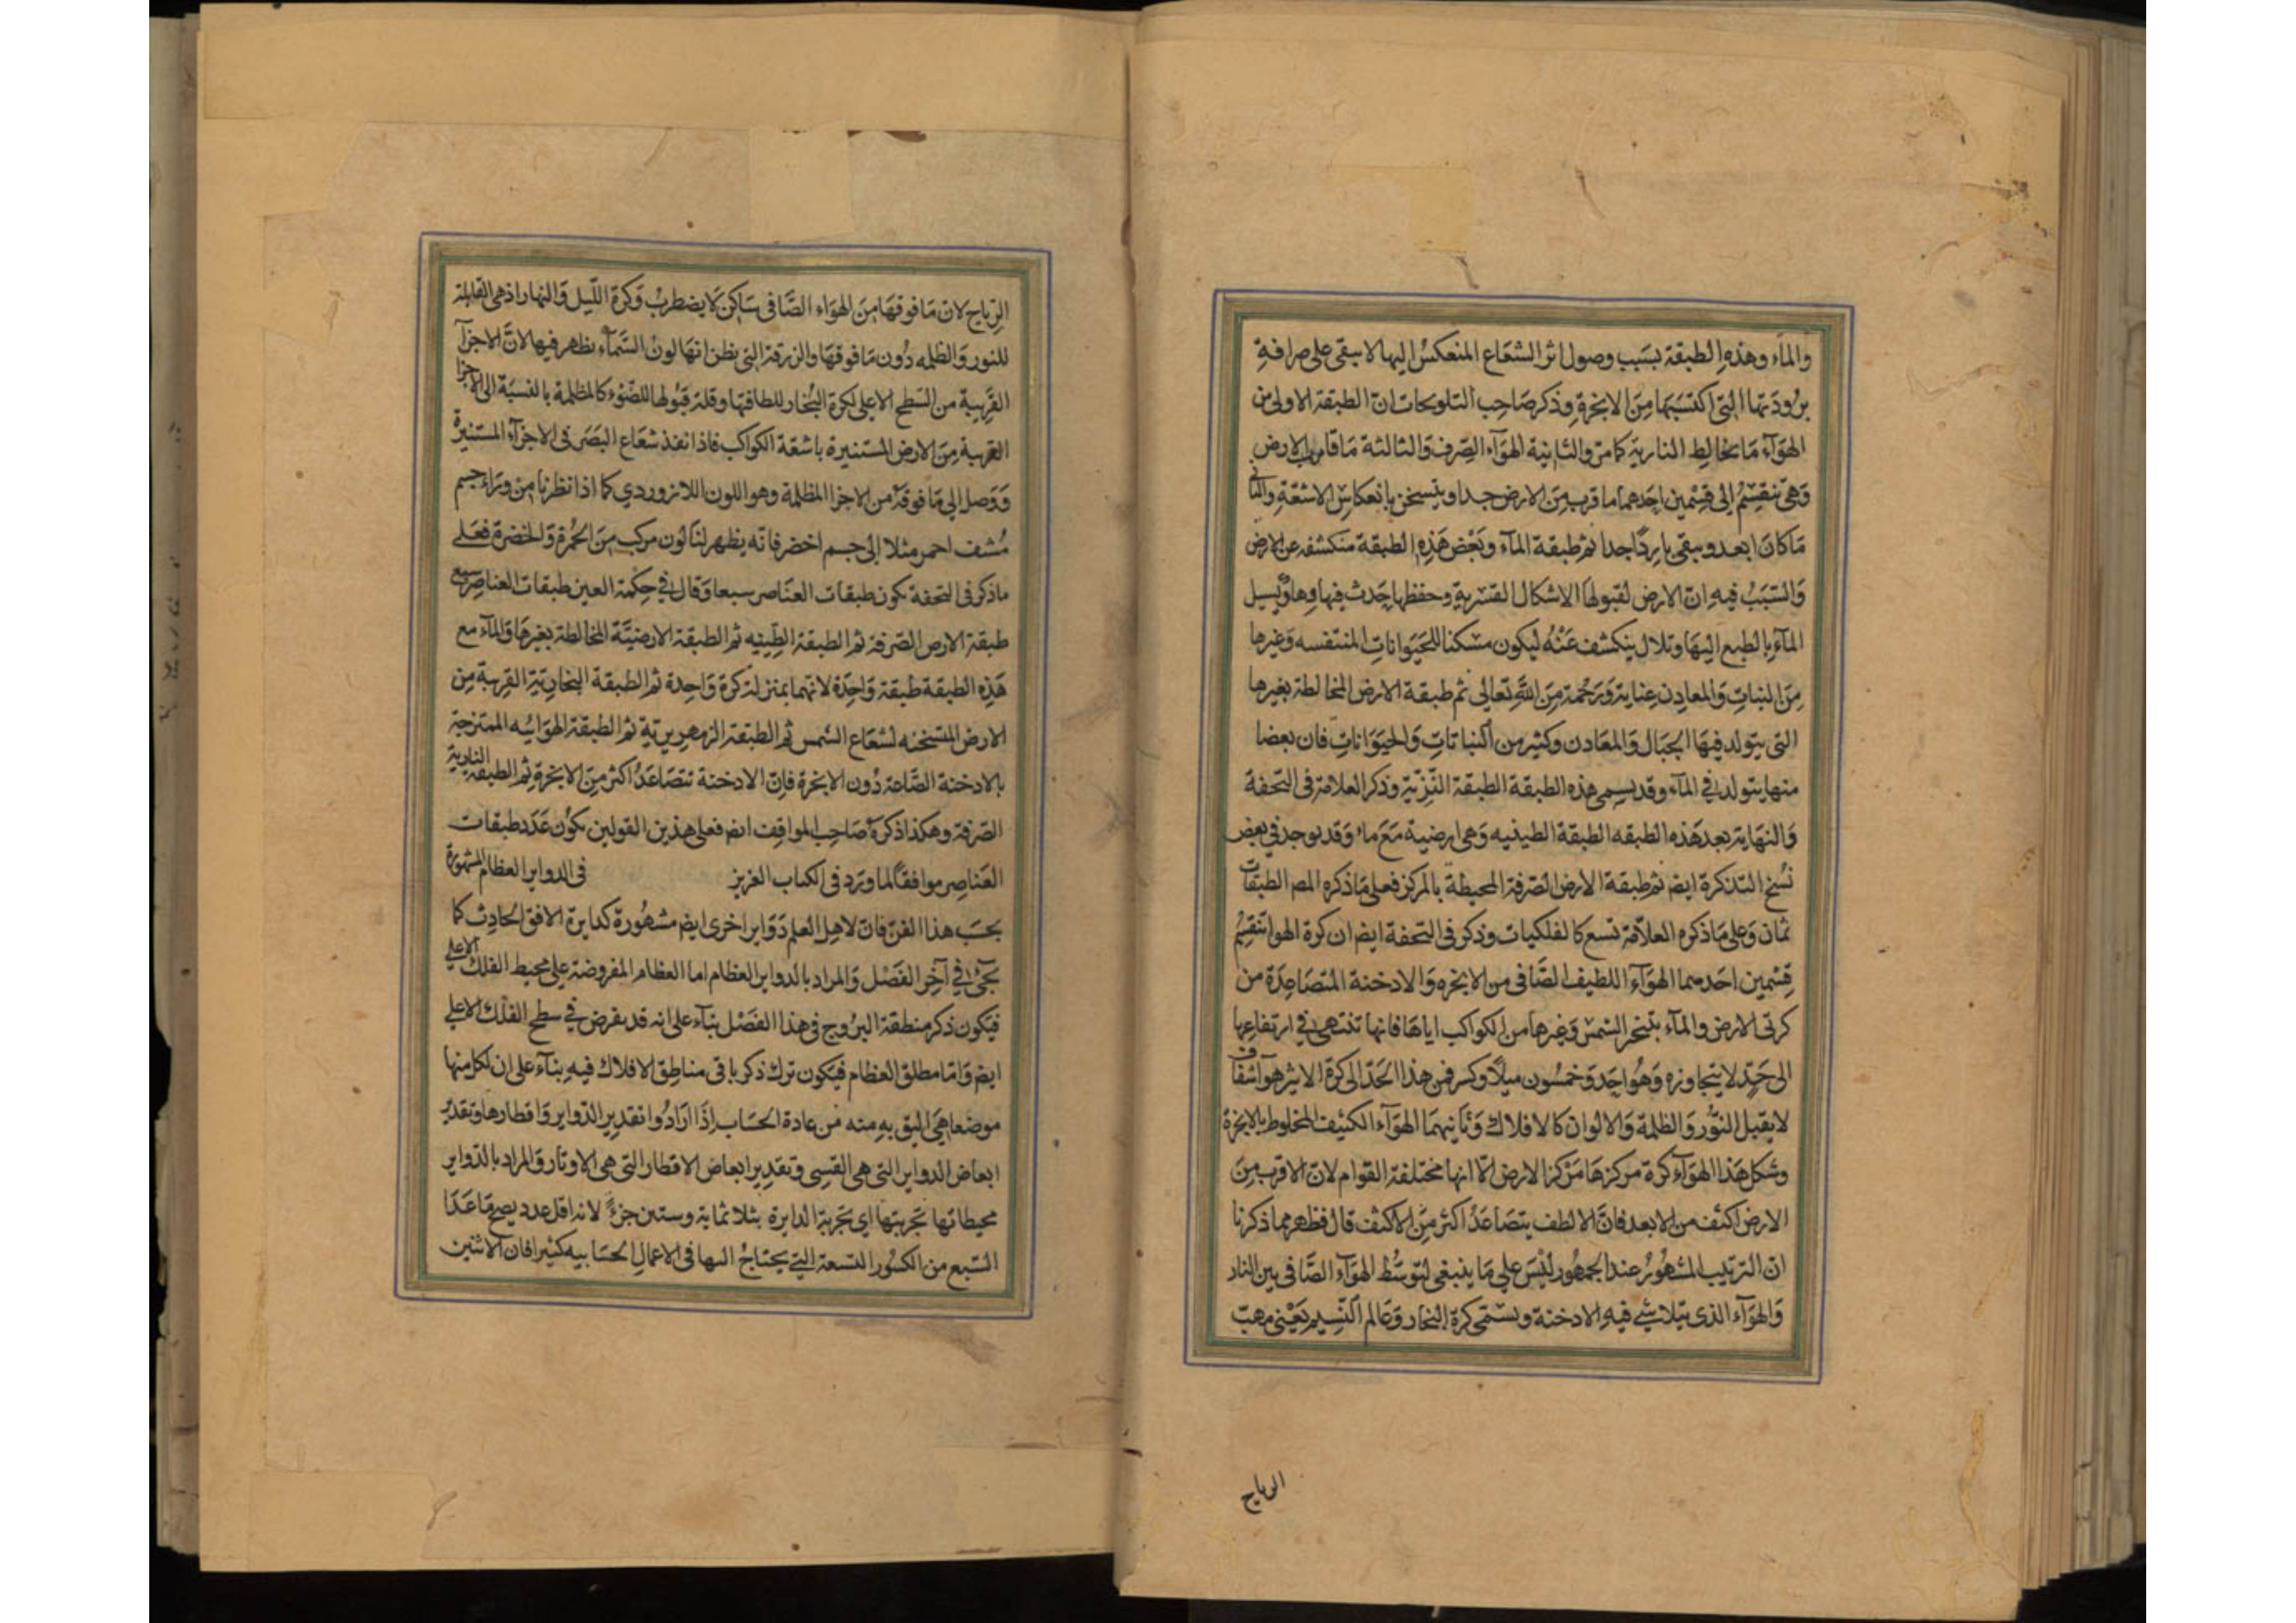 والماء وهذه الطبقة بسبب وصول اثر الشعاع المنعكس اليها لا يبقى على صرافة
برودتها التي اكتسبتها من الابخرة وذكر صاحب التلويحات ان الطبقة الاولى من
الهوآء ما يخالط النارية كما مر والثانية الهوآء الصرف والثالثة ما قارب الارض
وهي تنقسم الى قسمين احدهما ما قرب من الارض جدا ويتسخن بانعكاس الاشعة والثاني
ما كان ابعد ويبقى باردا جدا ثم طبقة المآء وبعض هذه الطبقة منكشفة عن الارض
والسبب فيه ان الارض لقبولها الاشكال القسرية وحفظها حدث فيها وهاد يسيل
المآء بالطبع اليها وتلال ينكشف عنه ليكون مسكنا للحيوانات المتنفسه وغيرها
من النبات والمعادن عناية ورحمة من الله تعالى ثم طبقة الارض المخالطة بغيرها
التي يتولد فيها الجبال والمعادن وكثير من النباتات والحيوانات فان بعضا
منها يتولد في المآء وقد يسمى هذه الطبقة الطبقة النزية وذكر العلامة في التحفة
والنهاية بعد هذه الطبقه الطبقة الطينيه وهي ارضية مع ماء وقد يوجد في بعض
نسخ التذكرة ايضا ثم طبقة الارض الصرفة المحيطة بالمركز فعلى ما ذكره المص الطبقات
ثمان وعلى ما ذكره العلامة تسع كالفلكيات وذكر في التحفة ايضا ان كرة الهوا تنقسم
قسمين احدهما الهوآء اللطيف الصافى من الابخره والادخنة المتصاعدة من
كرتى الارض والمآء بتبخر الشمس وغيرها من الكواكب اياها فانها تنتهى في ارتفاعها
الى حد لا يتجاوزه وهو احد وخمسون ميلا وكسر فمن هذا الحد الى كرة الاثير هوآ شفاف
لا يقبل النور والظلمة والالوان كالافلاك وثانيهما الهوآء الكثيف المخلوط بالابخرة
وشكل هذا الهوآء كرة مركزها مركز الارض الا انها مختلفة القوام لان الاقرب من
الارض اكثف من الابعد فان الالطف يتصاعد اكثر من الاكثف قال فظهر مما ذكرنا
ان الترتيب المشهور عند الجمهور ليس على ما ينبغى لتوسط الهوآء الصافى بين النار
والهوآء الذى يتلاشى فيه الادخنة ويسمى كرة البخار وعالم النسيم يعني مهب
الرياح
الرياح لان ما فوقها من الهواء الصافى ساكن لا يضطرب وكرة الليل والنهار اذ هي القابلة
للنور والظلمه دون ما فوقها والزرقة التي يظن انها لون السمآء يظهر فيها لان الاجزآ
القريبة من السطح الاعلى لكرة البخار للطافتها وقلة قبولها للضوء كالمظلمة بالنسبة الى الاجزا
القريبة من الارض المستنيرة باشعة الكواكب فاذا نفذ شعاع البصر في الاجزآء المستنيرة
ووصل الى ما فوقه من الاجزا المظلمة وهو اللون اللازوردي كما اذا نظرنا من وراء جسم
مشف احمر مثلا الى جسم اخضر فانه يظهر لنا لون مركب من الحمرة والخضرة فعلى
ما ذكر في التحفة يكون طبقات العناصر سبعا وقال في حكمة العين طبقات العناصر سبع
طبقة الارض الصرفة ثم الطبقة الطينيه ثم الطبقة الارضية المخالطة بغيرها والمآء مع
هذه الطبقة طبقة واحدة لانهما بمنزلة كرة واحدة ثم الطبقة البخارية القريبة من
الارض المتسخنه لشعاع الشمس ثم الطبقة الزمهريرية ثم الطبقة الهوائيه الممتزجة
بالادخنة الصاعدة دون الابخرة فان الادخنة تتصاعد اكثر من الابخرة ثم الطبقة النارية
الصرفة وهكذا ذكره صاحب المواقف ايضا فعلى هذين القولين يكون عدد طبقات
العناصر موافقا لما ورد في الكتاب العزيز في الدواير العظام المشهورة
بحسب هذا الفن فان لاهل العلم دواير اخرى ايضا مشهورة كدايرة الافق الحادث كما
يجئ في آخر الفصل والمراد بالدواير العظام اما العظام المفروضة على محيط الفلك الاعلى
فيكون ذكر منطقة البروج في هذا الفصل بنآء على انه قد يفرض في سطح الفلك الاعلى
ايضا واما مطلق العظام فيكون ترك ذكر باقى مناطق الافلاك فيه بنآء على ان لكل منها
موضعا هي اليق به منه من عادة الحساب اذا ارادوا تقدير الدواير واقطارها وتقدير
ابعاض الدواير التي هي القسى وتقدير ابعاض الاقطار التي هي الاوتار والمراد بالدواير
محيطاتها تجزيتها اي تجزية الدايرة بثلاثماية وستين جزءً لانه اقل عدد يصح ما عدا
السبع من الكسور التسعة التي يحتاج اليها في الاعمال الحسابيه كثيرا فان الاثنين